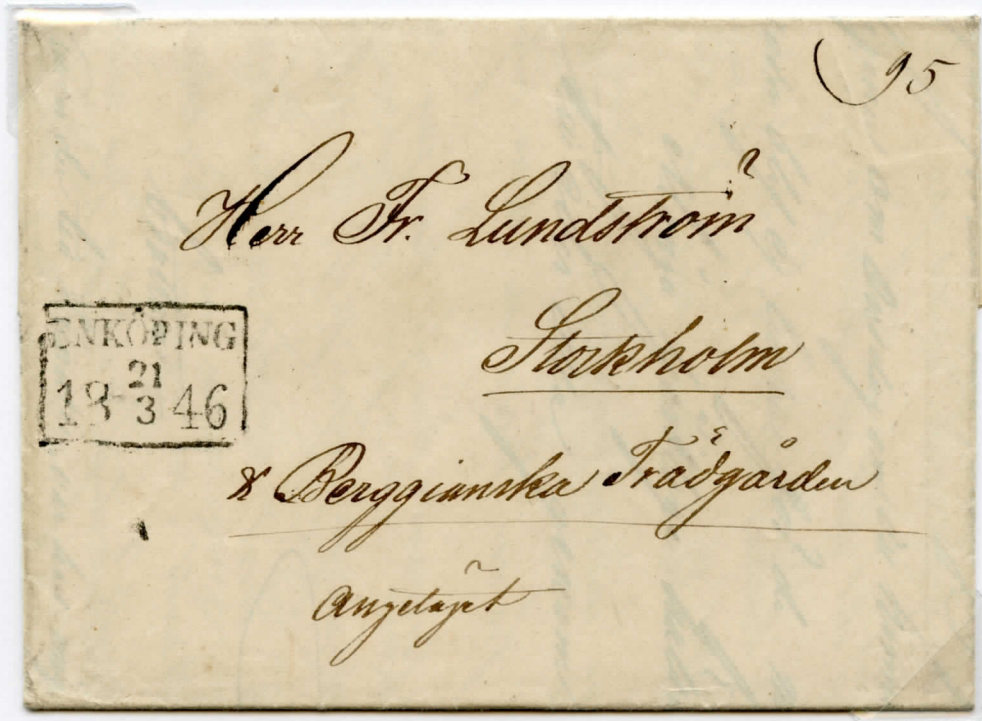 95
Herr Fr. Lundström
Stockholm
ENKÖPING
21
18 3 46
Berggianska Trädgården
Angeläget